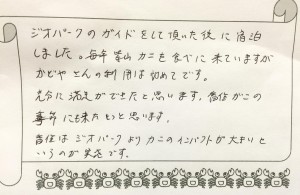 ジオパークのガイドをして頂いた後に宿泊
しました。毎年 カニを食べに来ていますが
かどやさんの利用は初めてです。
充分に満足ができたと思います。
季節にも来たいと思います。
ジオパークよりカニのインパクトが大きいと
いうのが実感です。